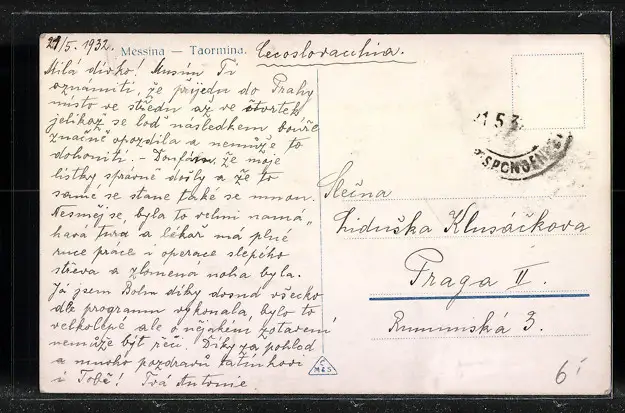 29/5. 1932. Messina — Taormina. Cecoslovacchia.
Milá dívko! Musím Ti
oznámiti, že přijedu do Prahy
místo ve středu až ve čtvrtek
jelikož se loď následkem bouře
značně opozdila a nemůže to
dohoniti. – Doufám, že moje
lístky správně došly a že to
samé se stane také se mnou.
Nesměj se, byla to velmi namá-
havá tura a lékař má plné
ruce práce i operace slepého
střeva a zlomená noha byla.
Já jsem Bohu díky dosud všecko
dle programu vykonala, bylo to
velkolepé ale o nějakém zotavení
nemůže být řeči. Díky za pohled
a mnoho pozdravů tatínkovi
i Tobě! Tvá Antonie
1 5 3
SPONDEN
Slečna
Liduška Klusáčkova
Praga II.
Rumunská 3.
M&S
6